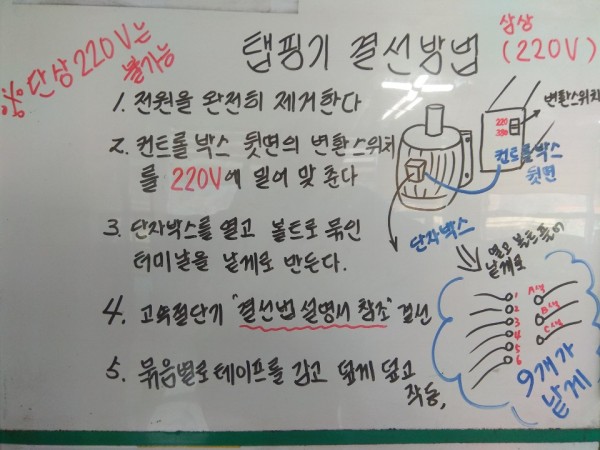 ※ 단상 220V는
불가능
탭핑기 결선방법
삼상
(220V)
1. 전원을 완전히 제거한다
2. 컨트롤 박스 뒷면의 변환스위치
를 220V에 밀어 맞춘다
3. 단자박스를 열고 볼트로 묶인
터미날을 낱게로 만든다.
4. 고속절단기 "결선법 설명서 참조" 결선
5. 묶음별로 테이프를 감고 덮게 덮고
작동,
220
380
변환스위치
컨트롤박스
뒷면
단자박스
열고 볼트 풀어
낱게로
1
2
3
4
5
6
A선
B선
C선
9개가
낱게